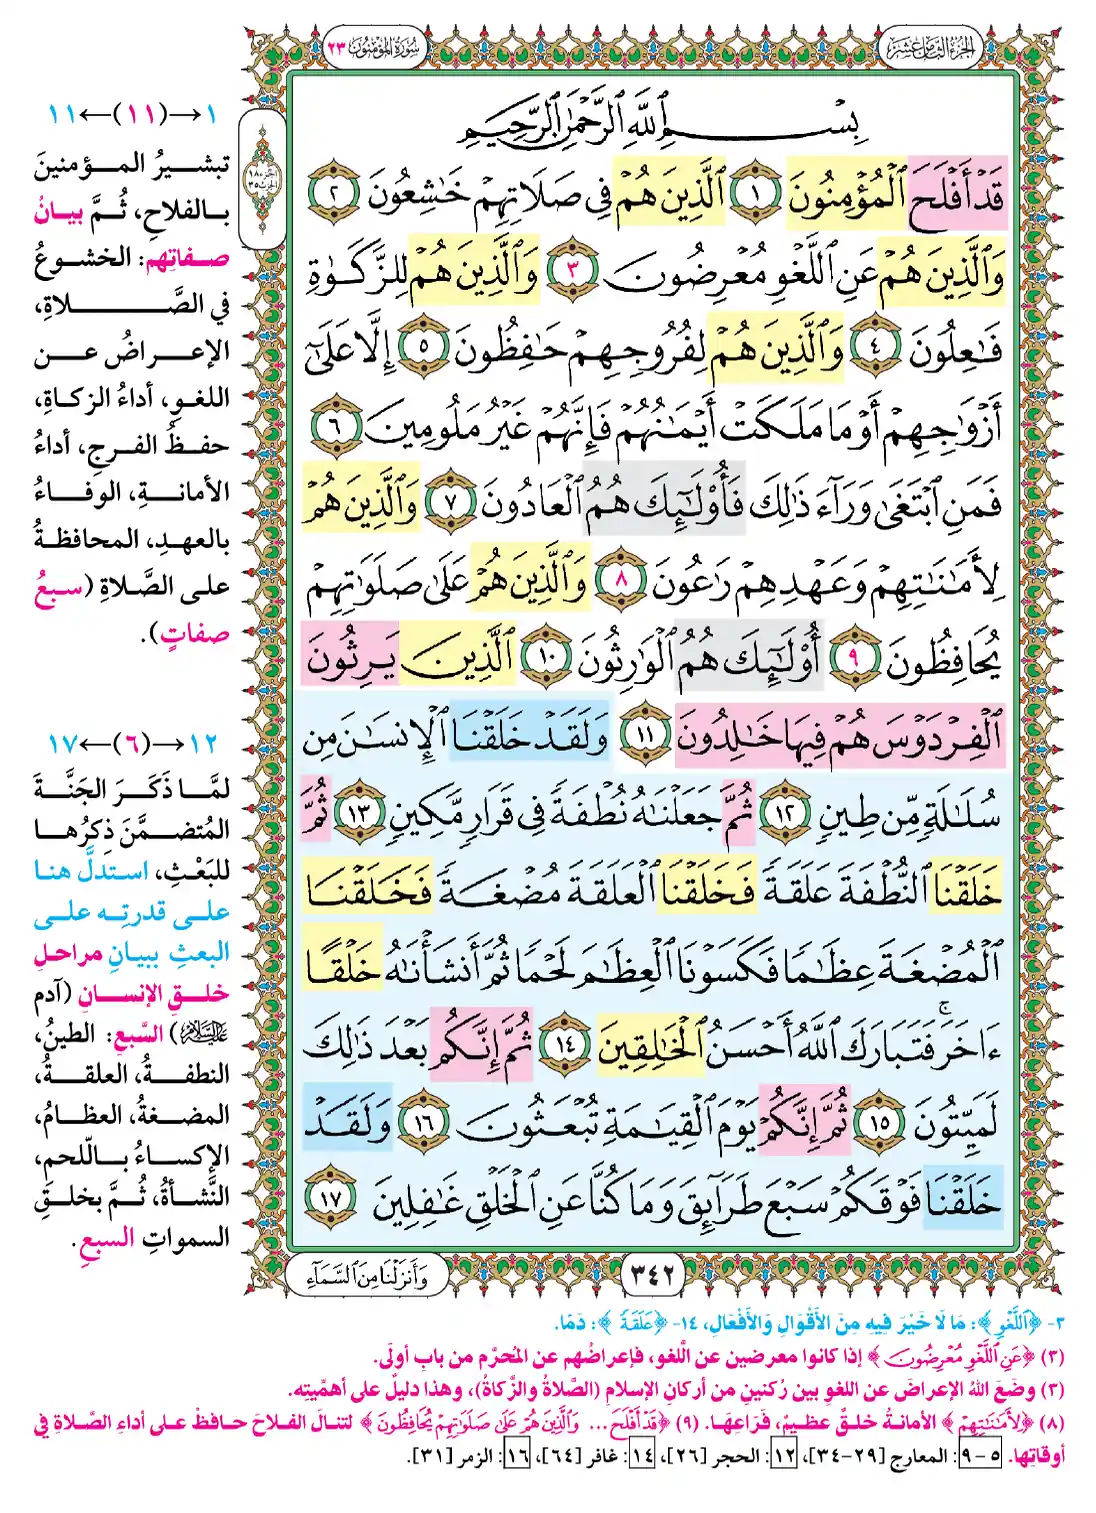 الجزء الثامن عشر
سورة المؤمنون ٢٣
بِسْمِ ٱللَّهِ ٱلرَّحْمَٰنِ ٱلرَّحِيمِ
قَدْ أَفْلَحَ ٱلْمُؤْمِنُونَ ١ ٱلَّذِينَ هُمْ فِى صَلَاتِهِمْ خَٰشِعُونَ ٢
وَٱلَّذِينَ هُمْ عَنِ ٱللَّغْوِ مُعْرِضُونَ ٣ وَٱلَّذِينَ هُمْ لِلزَّكَوٰةِ
فَٰعِلُونَ ٤ وَٱلَّذِينَ هُمْ لِفُرُوجِهِمْ حَٰفِظُونَ ٥ إِلَّا عَلَىٰٓ
أَزْوَٰجِهِمْ أَوْ مَا مَلَكَتْ أَيْمَٰنُهُمْ فَإِنَّهُمْ غَيْرُ مَلُومِينَ ٦
فَمَنِ ٱبْتَغَىٰ وَرَآءَ ذَٰلِكَ فَأُو۟لَٰٓئِكَ هُمُ ٱلْعَادُونَ ٧ وَٱلَّذِينَ هُمْ
لِأَمَٰنَٰتِهِمْ وَعَهْدِهِمْ رَٰعُونَ ٨ وَٱلَّذِينَ هُمْ عَلَىٰ صَلَوَٰتِهِمْ
يُحَافِظُونَ ٩ أُو۟لَٰٓئِكَ هُمُ ٱلْوَٰرِثُونَ ١٠ ٱلَّذِينَ يَرِثُونَ
ٱلْفِرْدَوْسَ هُمْ فِيهَا خَٰلِدُونَ ١١ وَلَقَدْ خَلَقْنَا ٱلْإِنسَٰنَ مِن
سُلَٰلَةٍ مِّن طِينٍ ١٢ ثُمَّ جَعَلْنَٰهُ نُطْفَةً فِى قَرَارٍ مَّكِينٍ ١٣ ثُمَّ
خَلَقْنَا ٱلنُّطْفَةَ عَلَقَةً فَخَلَقْنَا ٱلْعَلَقَةَ مُضْغَةً فَخَلَقْنَا
ٱلْمُضْغَةَ عِظَٰمًا فَكَسَوْنَا ٱلْعِظَٰمَ لَحْمًا ثُمَّ أَنشَأْنَٰهُ خَلْقًا
ءَاخَرَ ۚ فَتَبَارَكَ ٱللَّهُ أَحْسَنُ ٱلْخَٰلِقِينَ ١٤ ثُمَّ إِنَّكُم بَعْدَ ذَٰلِكَ
لَمَيِّتُونَ ١٥ ثُمَّ إِنَّكُمْ يَوْمَ ٱلْقِيَٰمَةِ تُبْعَثُونَ ١٦ وَلَقَدْ
خَلَقْنَا فَوْقَكُمْ سَبْعَ طَرَآئِقَ وَمَا كُنَّا عَنِ ٱلْخَلْقِ غَٰفِلِينَ ١٧
٣٤٢
وَأَنزَلْنَا مِنَ ٱلسَّمَآءِ
١→(١١)←١١
تبشيرُ المؤمنينَ
بالفلاحِ، ثُمَّ بيانُ
صفاتِهم: الخشوعُ
في الصَّلاةِ،
الإعراضُ عن
اللغوِ، أداءُ الزكاةِ،
حفظُ الفرجِ، أداءُ
الأمانةِ، الوفاءُ
بالعهدِ، المحافظةُ
على الصَّلاةِ (سبعُ
صفاتٍ).
١٢→(٦)←١٧
لمَّا ذَكَرَ الجَنَّةَ
المُتضمَّنَ ذِكرُها
للبَعْثِ، استدلَّ هنا
على قدرتِه على
البعثِ ببيانِ مراحلِ
خلقِ الإنسانِ (آدم
عليه السلام) السَّبعِ: الطينُ،
النطفةُ، العلقةُ،
المضغةُ، العظامُ،
الإكساءُ باللّحمِ،
النَّشأةُ، ثُمَّ بخلقِ
السمواتِ السبعِ.
٣- ﴿ٱللَّغْوِ﴾: مَا لَا خَيْرَ فِيهِ مِنَ الأَقْوَالِ وَالأَفْعَالِ، ١٤- ﴿عَلَقَةً﴾: دَمًا.
(٣) ﴿عَنِ ٱللَّغْوِ مُعْرِضُونَ﴾ إذا كانوا معرضين عن اللغو، فإعراضُهم عن المُحرَّم من بابِ أولَى.
(٣) وضَعَ اللهُ الإعراضَ عن اللغوِ بين رُكنينِ من أركانِ الإسلامِ (الصَّلاةُ والزَّكاةُ)، وهذا دليلٌ على أهمِّيتِه.
(٨) ﴿لِأَمَٰنَٰتِهِمْ﴾ الأمانةُ خلقٌ عظيمٌ، فَرَاعِهَا. (٩) ﴿قَدْ أَفْلَحَ ... وَٱلَّذِينَ هُمْ عَلَىٰ صَلَوَٰتِهِمْ يُحَافِظُونَ﴾ لتنالَ الفلاحَ حافظْ على أداءِ الصَّلاةِ في
أوقاتِها. ٥-٩: المعارج [٢٩-٣٤]، ١٢: الحجر [٢٦]، ١٤: غافر [٦٤]، ١٦: الزمر [٣١].